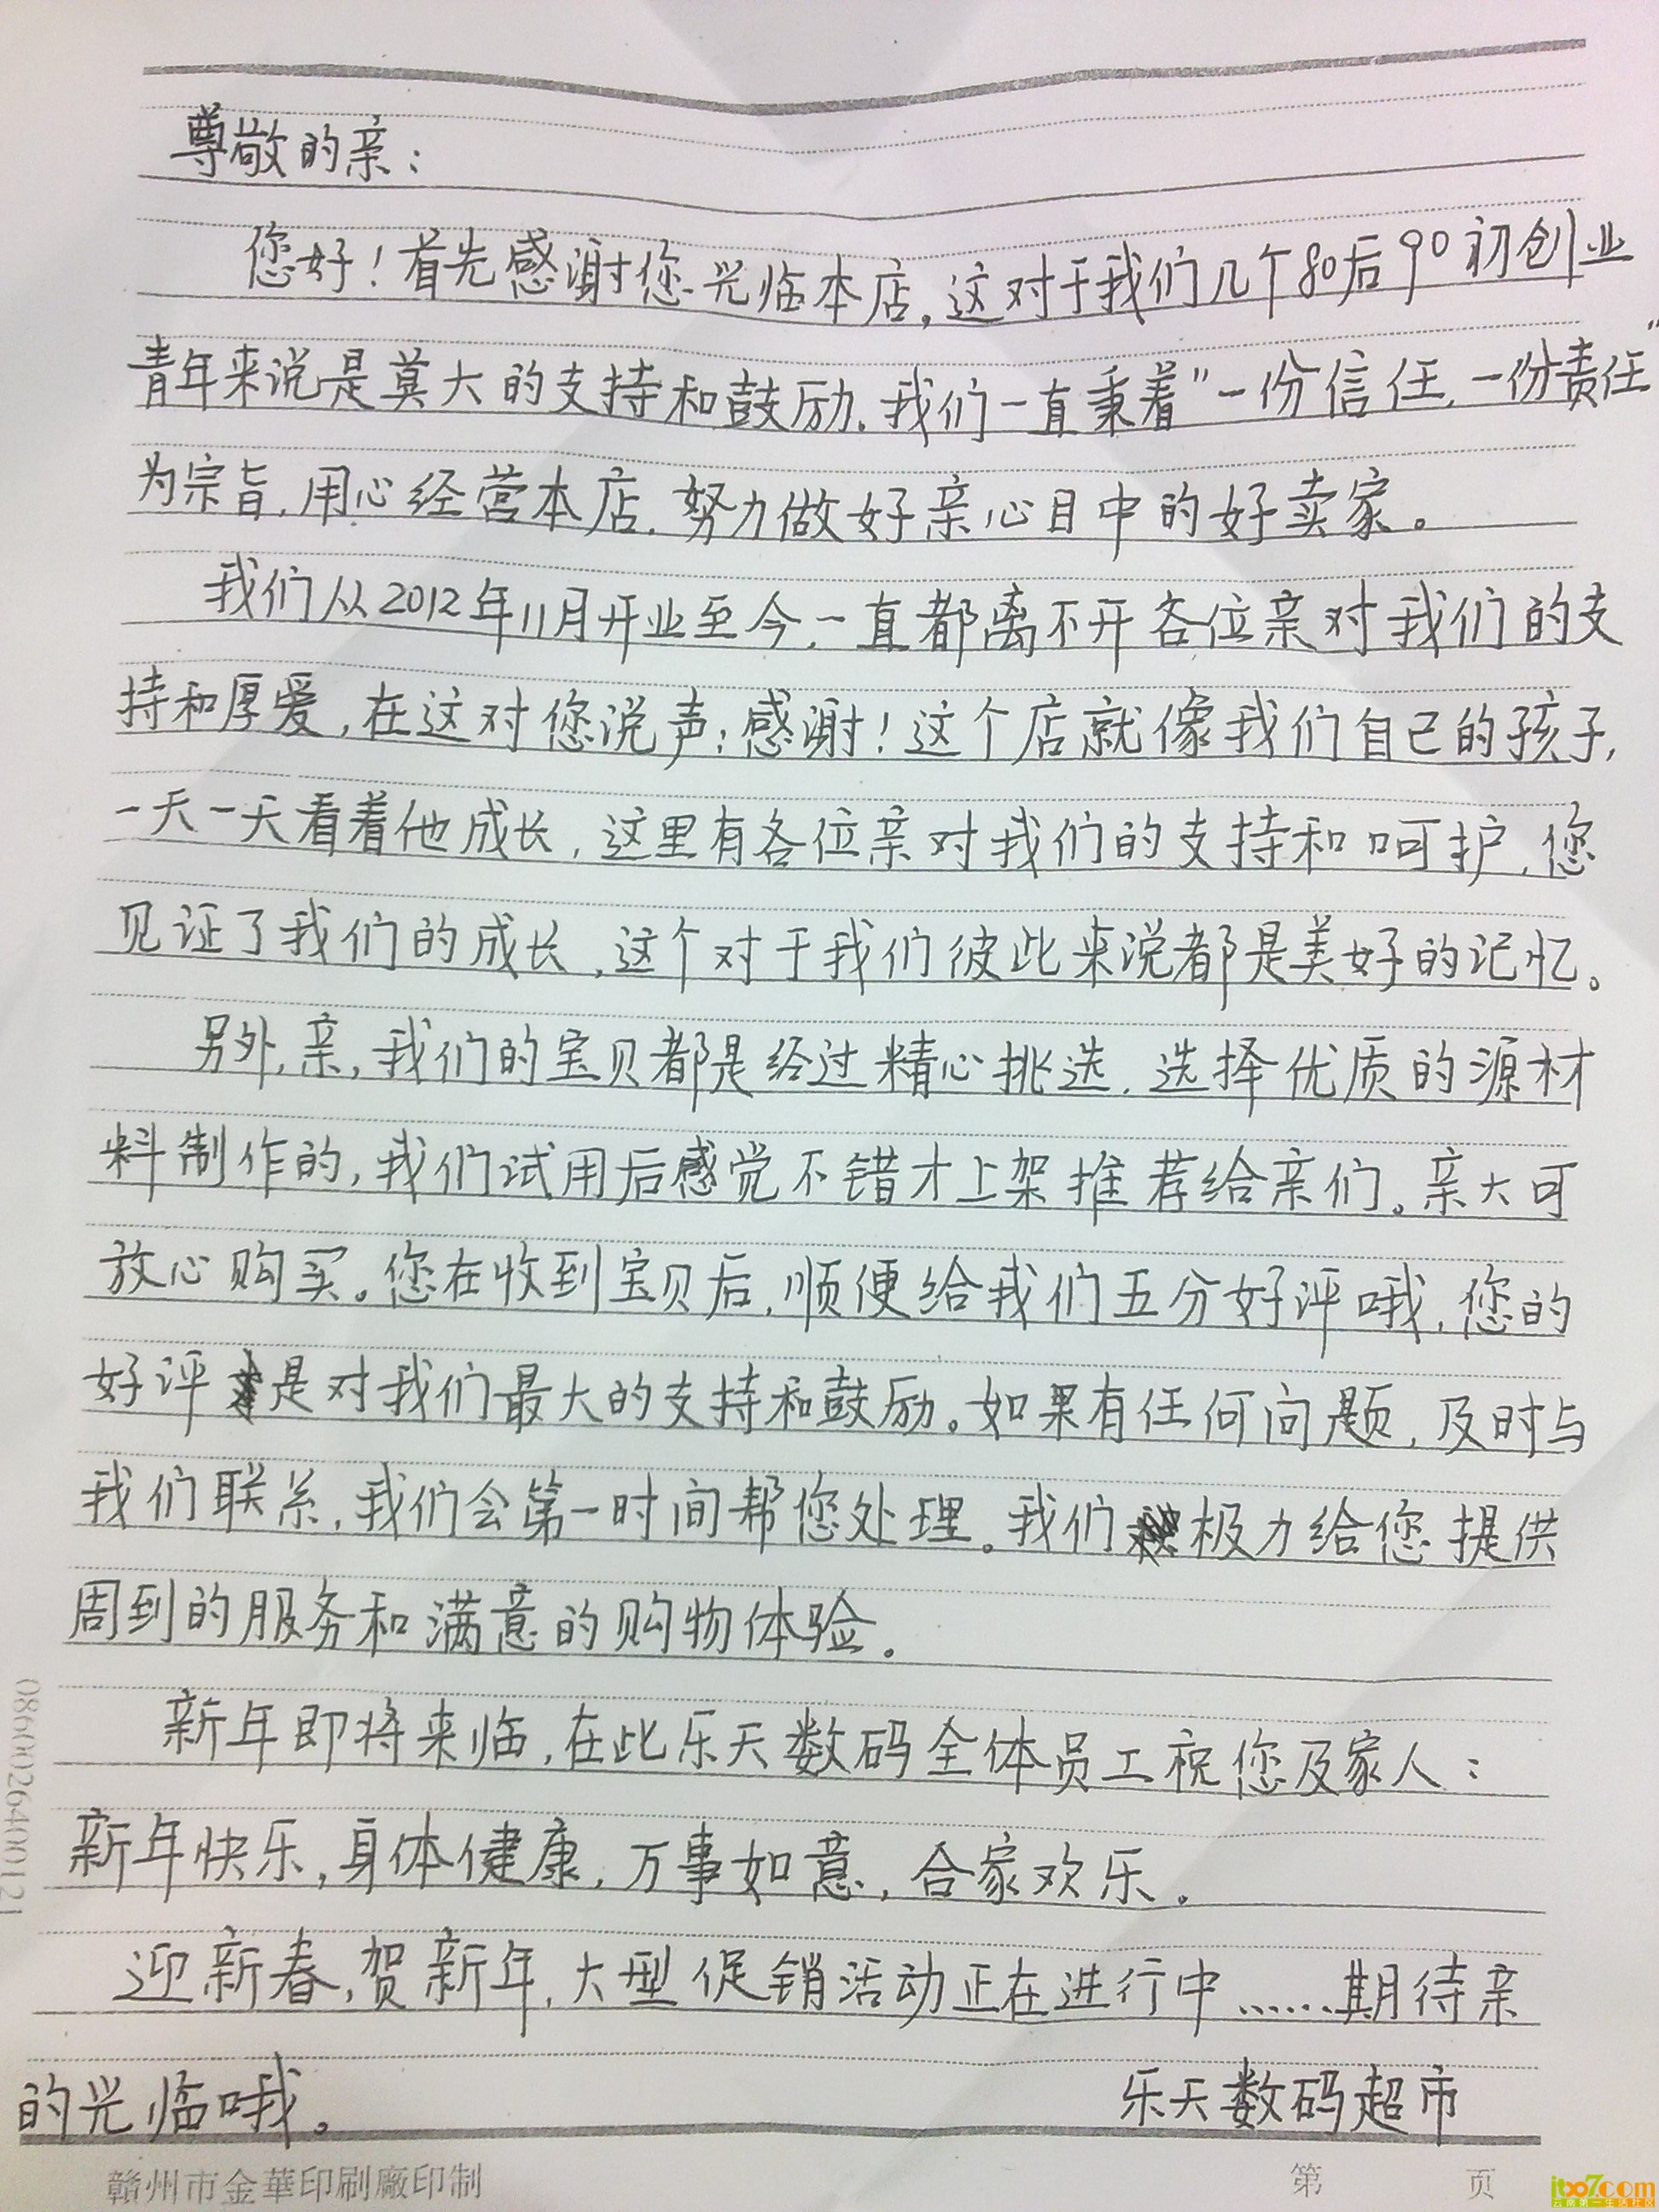 尊敬的亲：
您好！首先感谢您光临本店，这对于我们几个80后90初创业
青年来说是莫大的支持和鼓励，我们一直秉着"一份信任，一份责任"
为宗旨，用心经营本店，努力做好亲心目中的好卖家。
我们从2012年11月开业至今，一直都离不开各位亲对我们的支
持和厚爱，在这对您说声：感谢！这个店就像我们自己的孩子，
一天一天看着他成长，这里有各位亲对我们的支持和呵护，您
见证了我们的成长，这个对于我们彼此来说都是美好的记忆。
另外，亲，我们的宝贝都是经过精心挑选，选择优质的源材
料制作的，我们试用后感觉不错才上架推荐给亲们。亲大可
放心购买。您在收到宝贝后，顺便给我们五分好评哦，您的
好评是对我们最大的支持和鼓励。如果有任何问题，及时与
我们联系，我们会第一时间帮您处理。我们极力给您提供
周到的服务和满意的购物体验。
新年即将来临，在此乐天数码全体员工祝您及家人：
新年快乐，身体健康，万事如意，合家欢乐。
迎新春，贺新年，大型促销活动正在进行中……期待亲
的光临哦。
乐天数码超市
赣州市金華印刷廠印制
第 页
0860026400121
itoo7com
云南第一生活社区